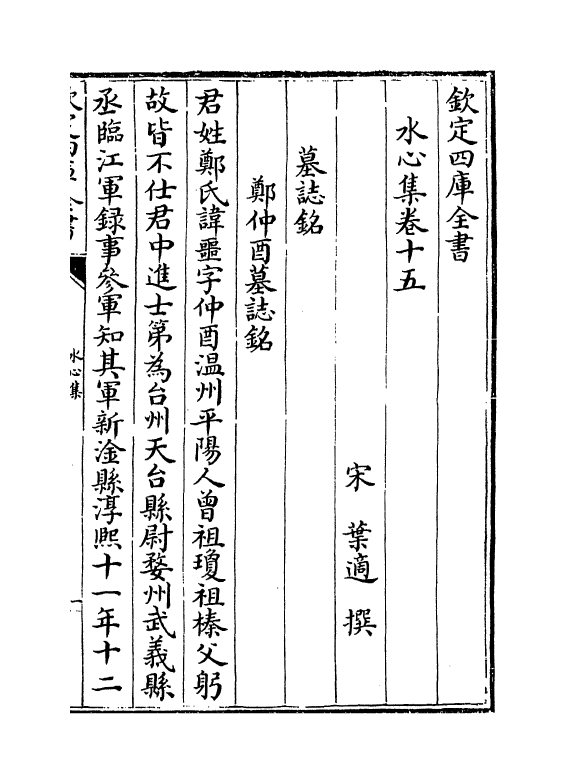 欽定四庫全書
水心集卷十五
宋 葉適 撰
墓誌銘
鄭仲酉墓誌銘
君姓鄭氏諱噩字仲酉温州平陽人曾祖瓊祖榛父躬
故皆不仕君中進士第為台州天台縣尉婺州武義縣
丞臨江軍録事參軍知其軍新淦縣淳熙十一年十二
水心集
一